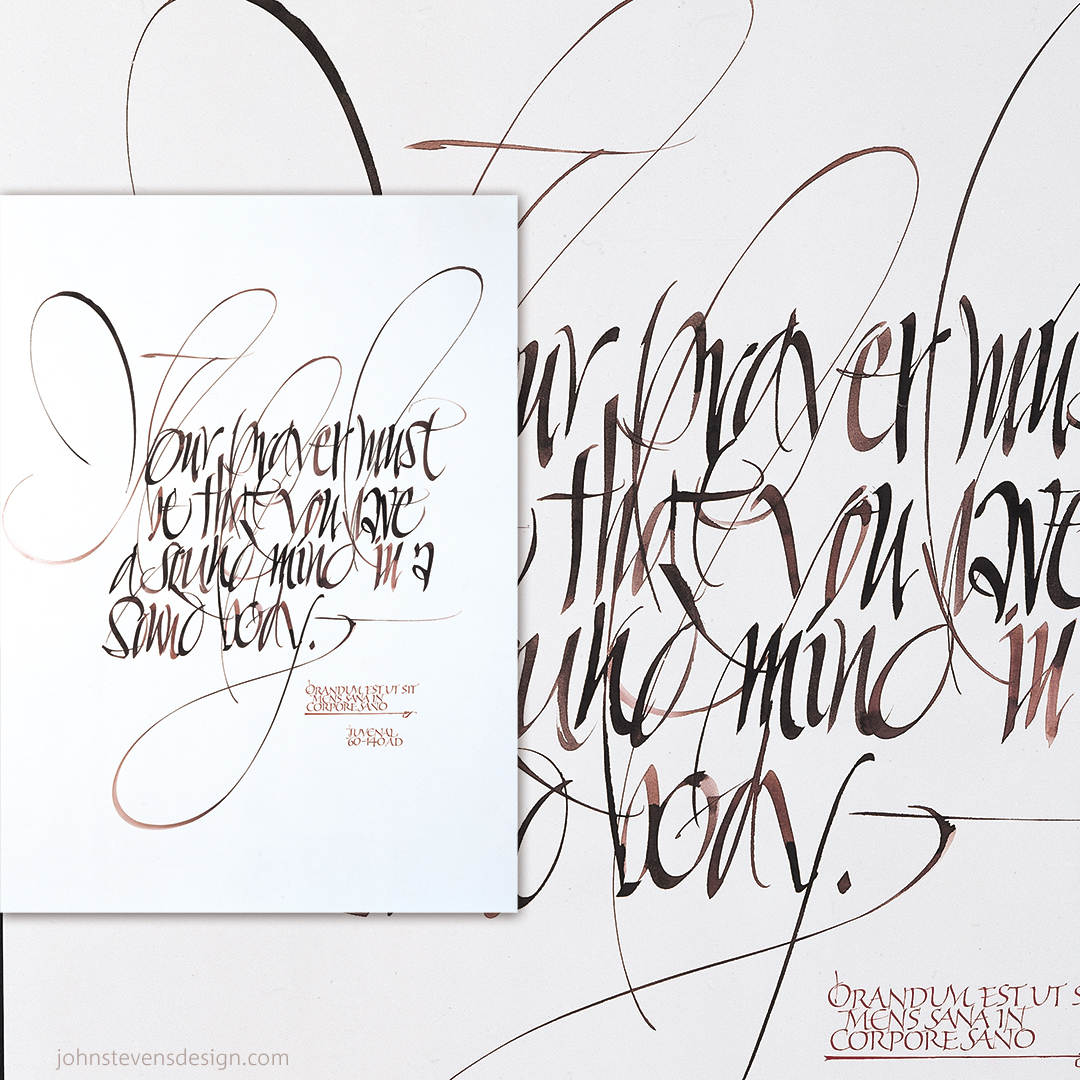 Your prayer must
be that you have
a sound mind in a
sound body.
ORANDUM EST UT SIT
MENS SANA IN
CORPORE SANO
JUVENAL
60-140 AD
ur prayer mus
that you have
und mind in
body.
ORANDUM EST UT S
MENS SANA IN
CORPORE SANO
johnstevensdesign.com